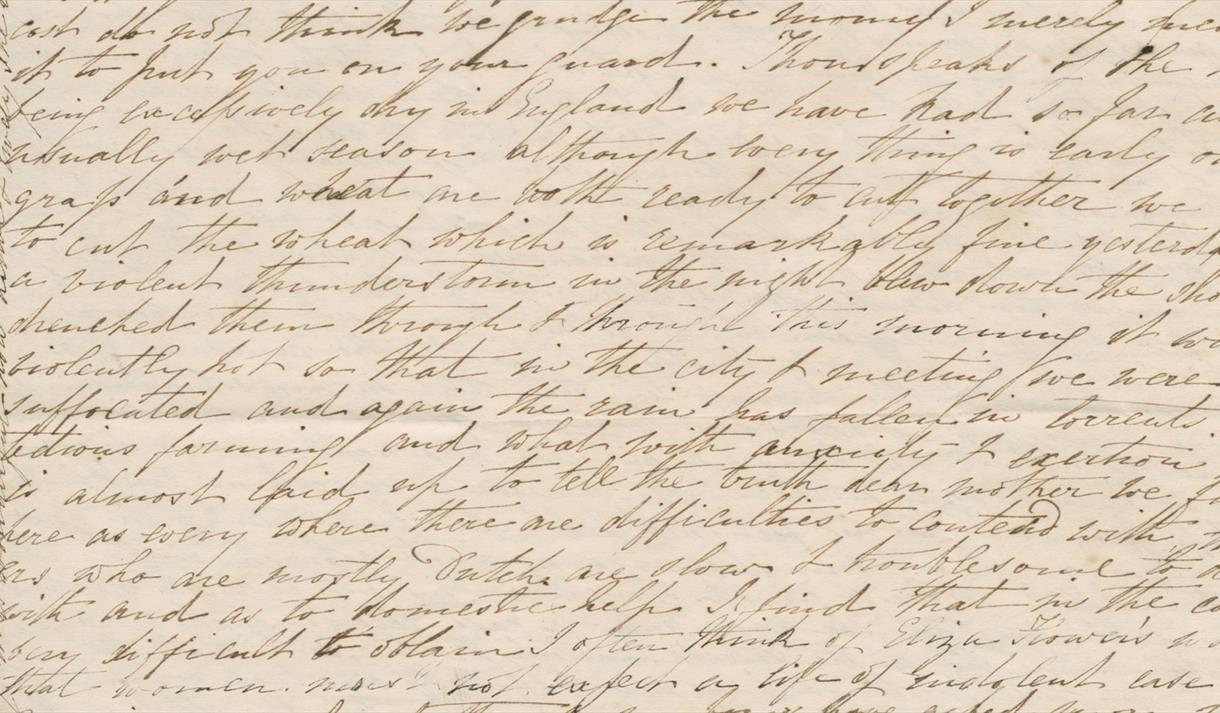 cost do not think we grudge the money I merely
it to put you on your guard. Thou speaks of the
being excessively dry in England we have had so far
usually wet season although every thing is early
grass and wheat are both ready to cut together we
to cut the wheat which is remarkably fine
a violent thunderstorm in the night blew down the
drenched them through & through this morning it
violently hot so that in the city & meeting we were
suffocated and again the rain has fallen in torrents
tedious farming and what with anxiety & exertion
is almost laid up to tell the truth dear mother we
here as every where there are difficulties to contend with
who are mostly Dutch are slow & troublesome to
with and as to domestic help I find that in the
very difficult to obtain I often think of Eliza
that women must not expect a life of indolent ease
have asked